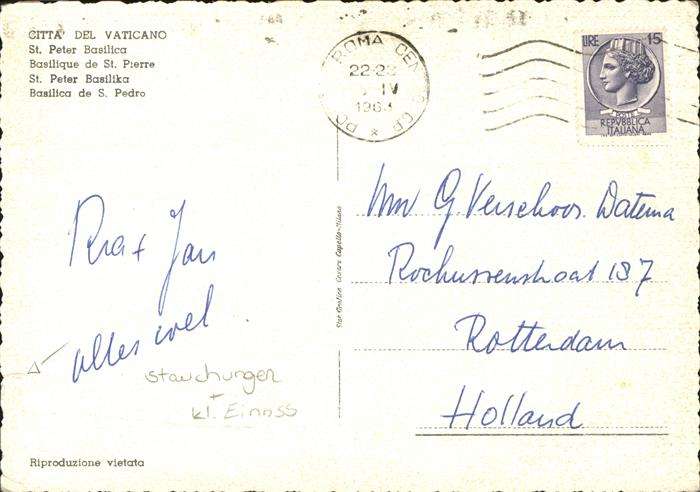 CITTA' DEL VATICANO
St. Peter Basilica
Basilique de St. Pierre
St. Peter Basilika
Basilica de S. Pedro
ROMA CEN
22-23
IV
1963
LIRE 15
POSTE
REPVBBLICA
ITALIANA
G. Verschoor. Datema
Rochussenstraat 187
Rotterdam
Holland
+ Jan
alles wel
stauchungen
+
kl. Einriss
Riproduzione vietata